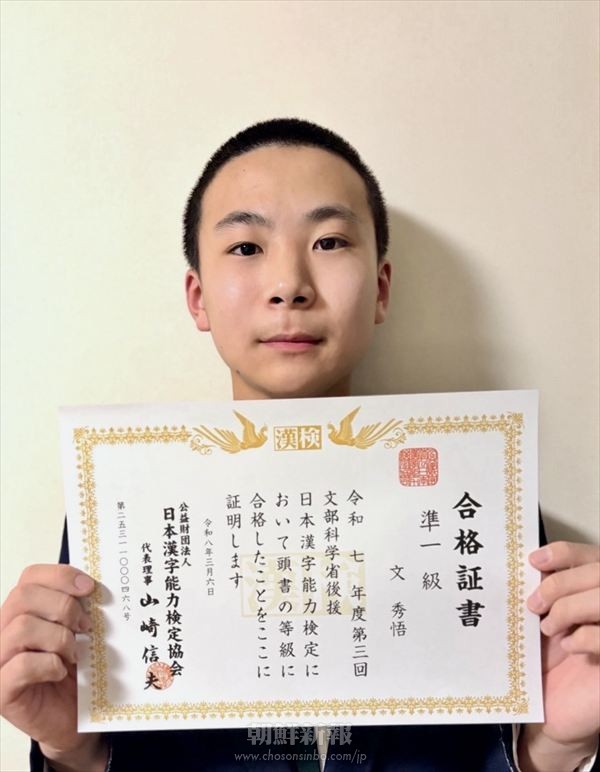 漢検
合格証書
準一級
文 秀悟
令和 七 年度第三回
文部科学省後援
日本漢字能力検定に
おいて頭書の等級に
合格したことをここに
証明します
令和八年三月六日
公益財団法人
日本漢字能力検定協会
代表理事 山崎信夫
第二五三一一〇〇〇四六八号
朝鮮新報
www.chosonsinbo.com/jp